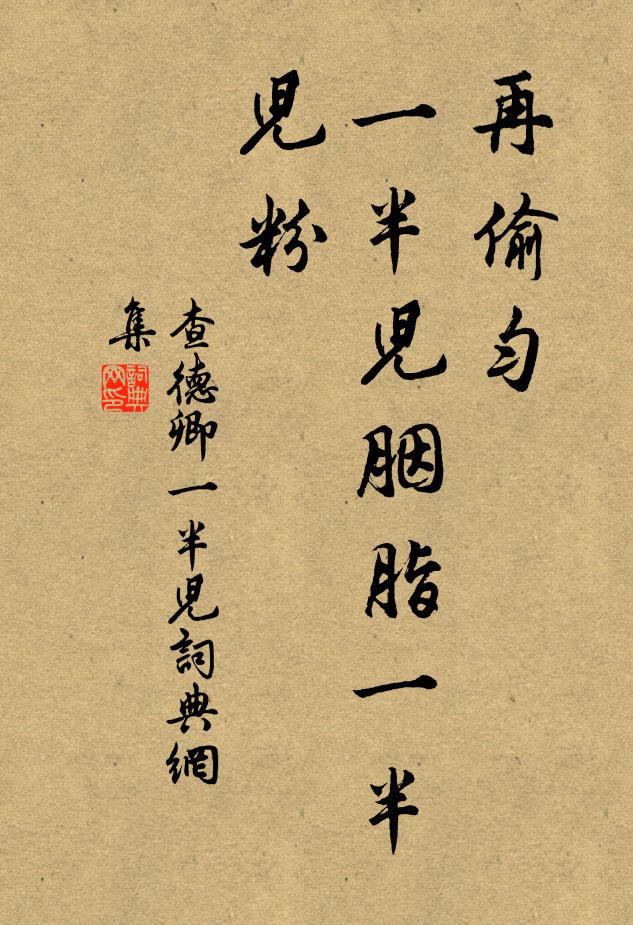 再偷勻
一半兒胭脂一半
兒粉
查德卿一半兒詞典網
集
詞典
网印